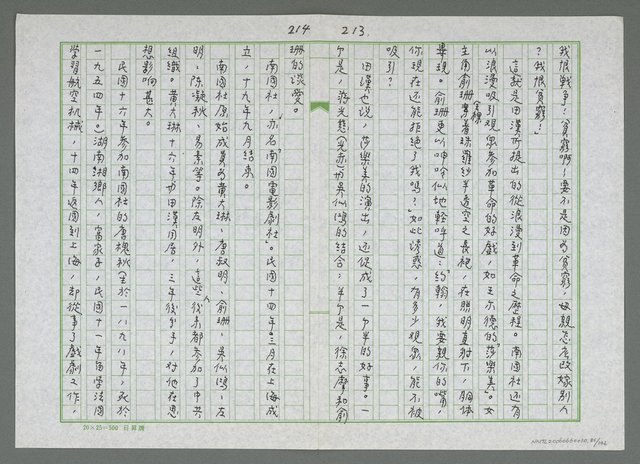 214 213.
我恨戰爭！「貧窮啊！要不是因為貧窮，奴親怎麼改嫁別人
？我恨貧窮！」
這就是田漢所提出的從浪漫到革命之歷程。南國社还有
以浪漫吸引观眾参加革命的好戲，如王尔德的「莎樂美」。女
主角俞珊全裸穿着珠羅纱半透空之長裙，在照明直射下，胴体
畢現。俞珊更以呻吟似地輕呼道：「約翰，我要親你的嘴，
你現在还能拒绝了我嗎？」如此诱惑，有多少观眾，能不被
吸引？
田漢也说，莎樂美的演出，还促成了一个半的好事。一
个是，蒋光慈（光赤）与吴似鴻的结合；半个是，徐志摩和俞
珊的谈爱。
南國社，亦名「南國電影劇社」。民國十四年三月在上海成
立，十九年九月结束。
南國社原始成員为黄大琳、唐叔明、俞珊、吴似鴻、左
明、陈凝秋、易素等。除左明外，這些人後来都参加了中共
組織。黄大琳十六年与田漢同居，三年後分手，对他在思
想影响甚大。
民國十六年参加南國社的唐槐秋（生於一八九八年，死於
一九五四年。）湖南湘鄉人，富家子，民國十一年留学法國
学習航空机械，十四年返國到上海，却從事了戲劇工作，
20×25=500 日昇牌